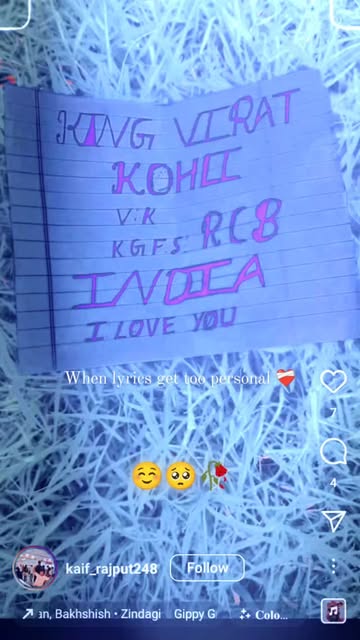 KING VIRAT
KOHLI
V.K
K G F S. RCB
INDIA
I LOVE YOU
When lyrics get too personal ❤️‍🩹
☺️🥺🥀
7
4
kaif_rajput248
Follow
an, Bakhshish • Zindagi Gippy G
Colo...